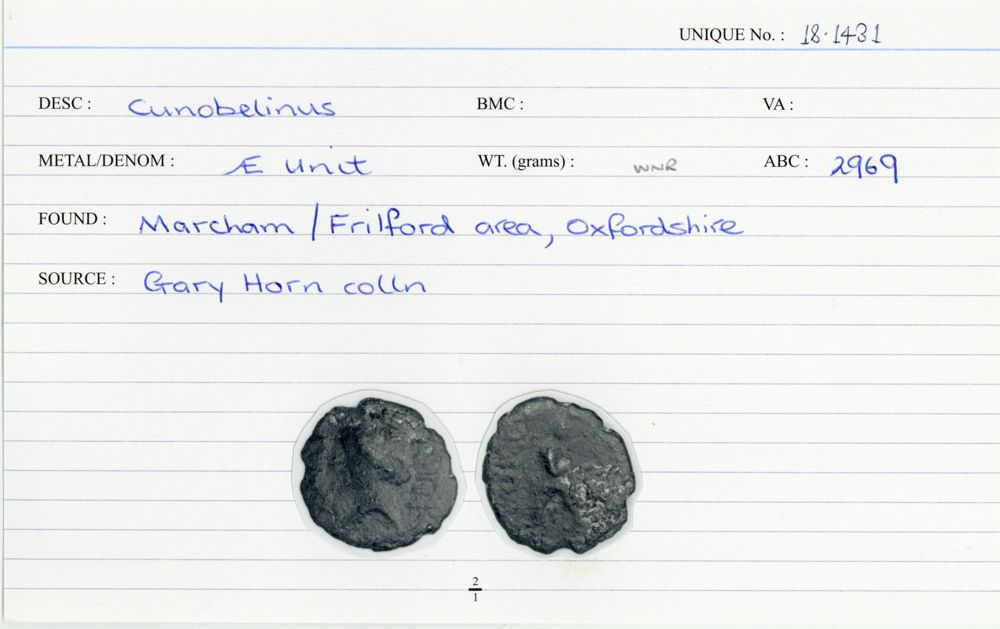 UNIQUE No. : 18.1431
DESC : Cunobelinus BMC : VA :
METAL/DENOM : Æ Unit WT. (grams) : WNR ABC : 2969
FOUND : Marcham / Frilford area, Oxfordshire
SOURCE : Gary Horn colln
2
1